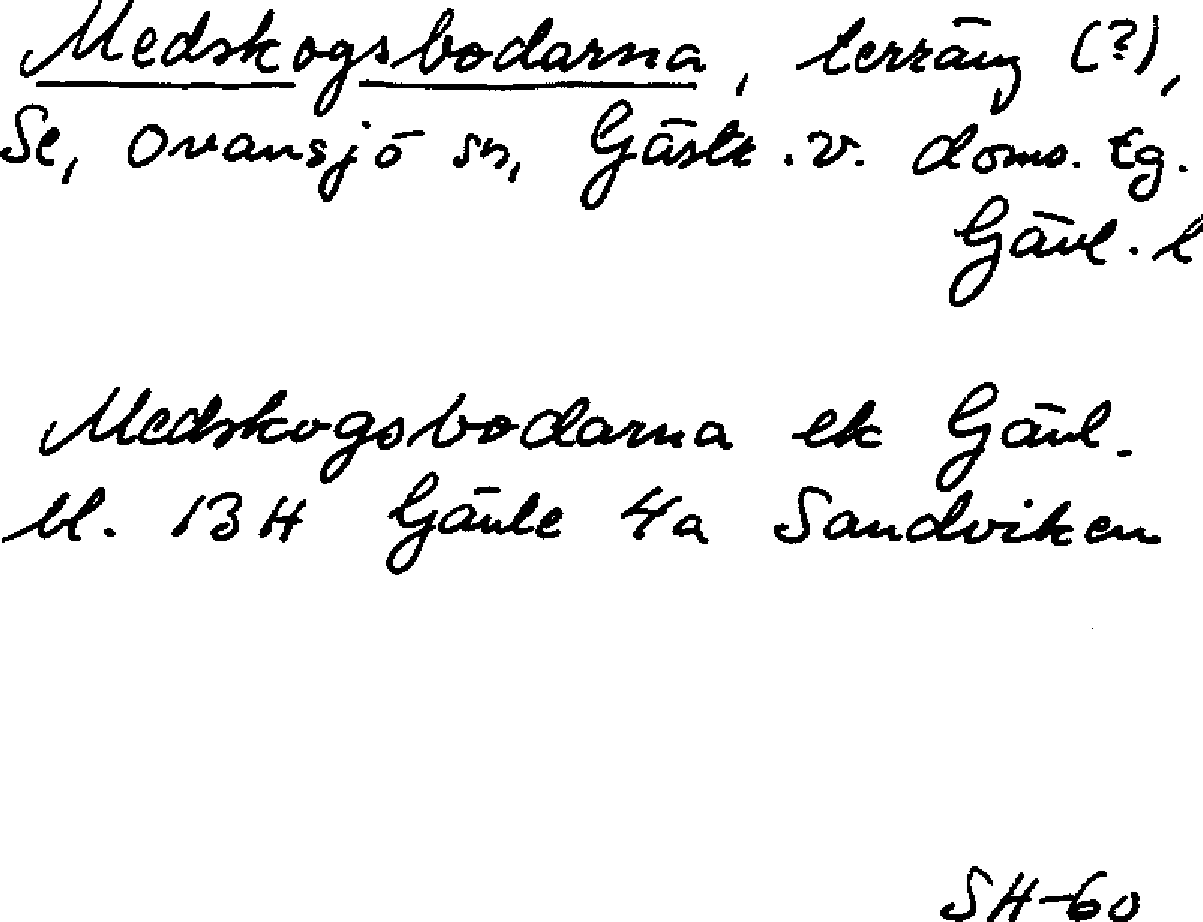 Medskogsbodarna, terräng (?),
Se, Ovansjö sn, Gästr. v. doms. tg.
Gävl. l
Medskogsbodarna ek Gävl.
bl. 13H Gävle 4a Sandviken
SH-60